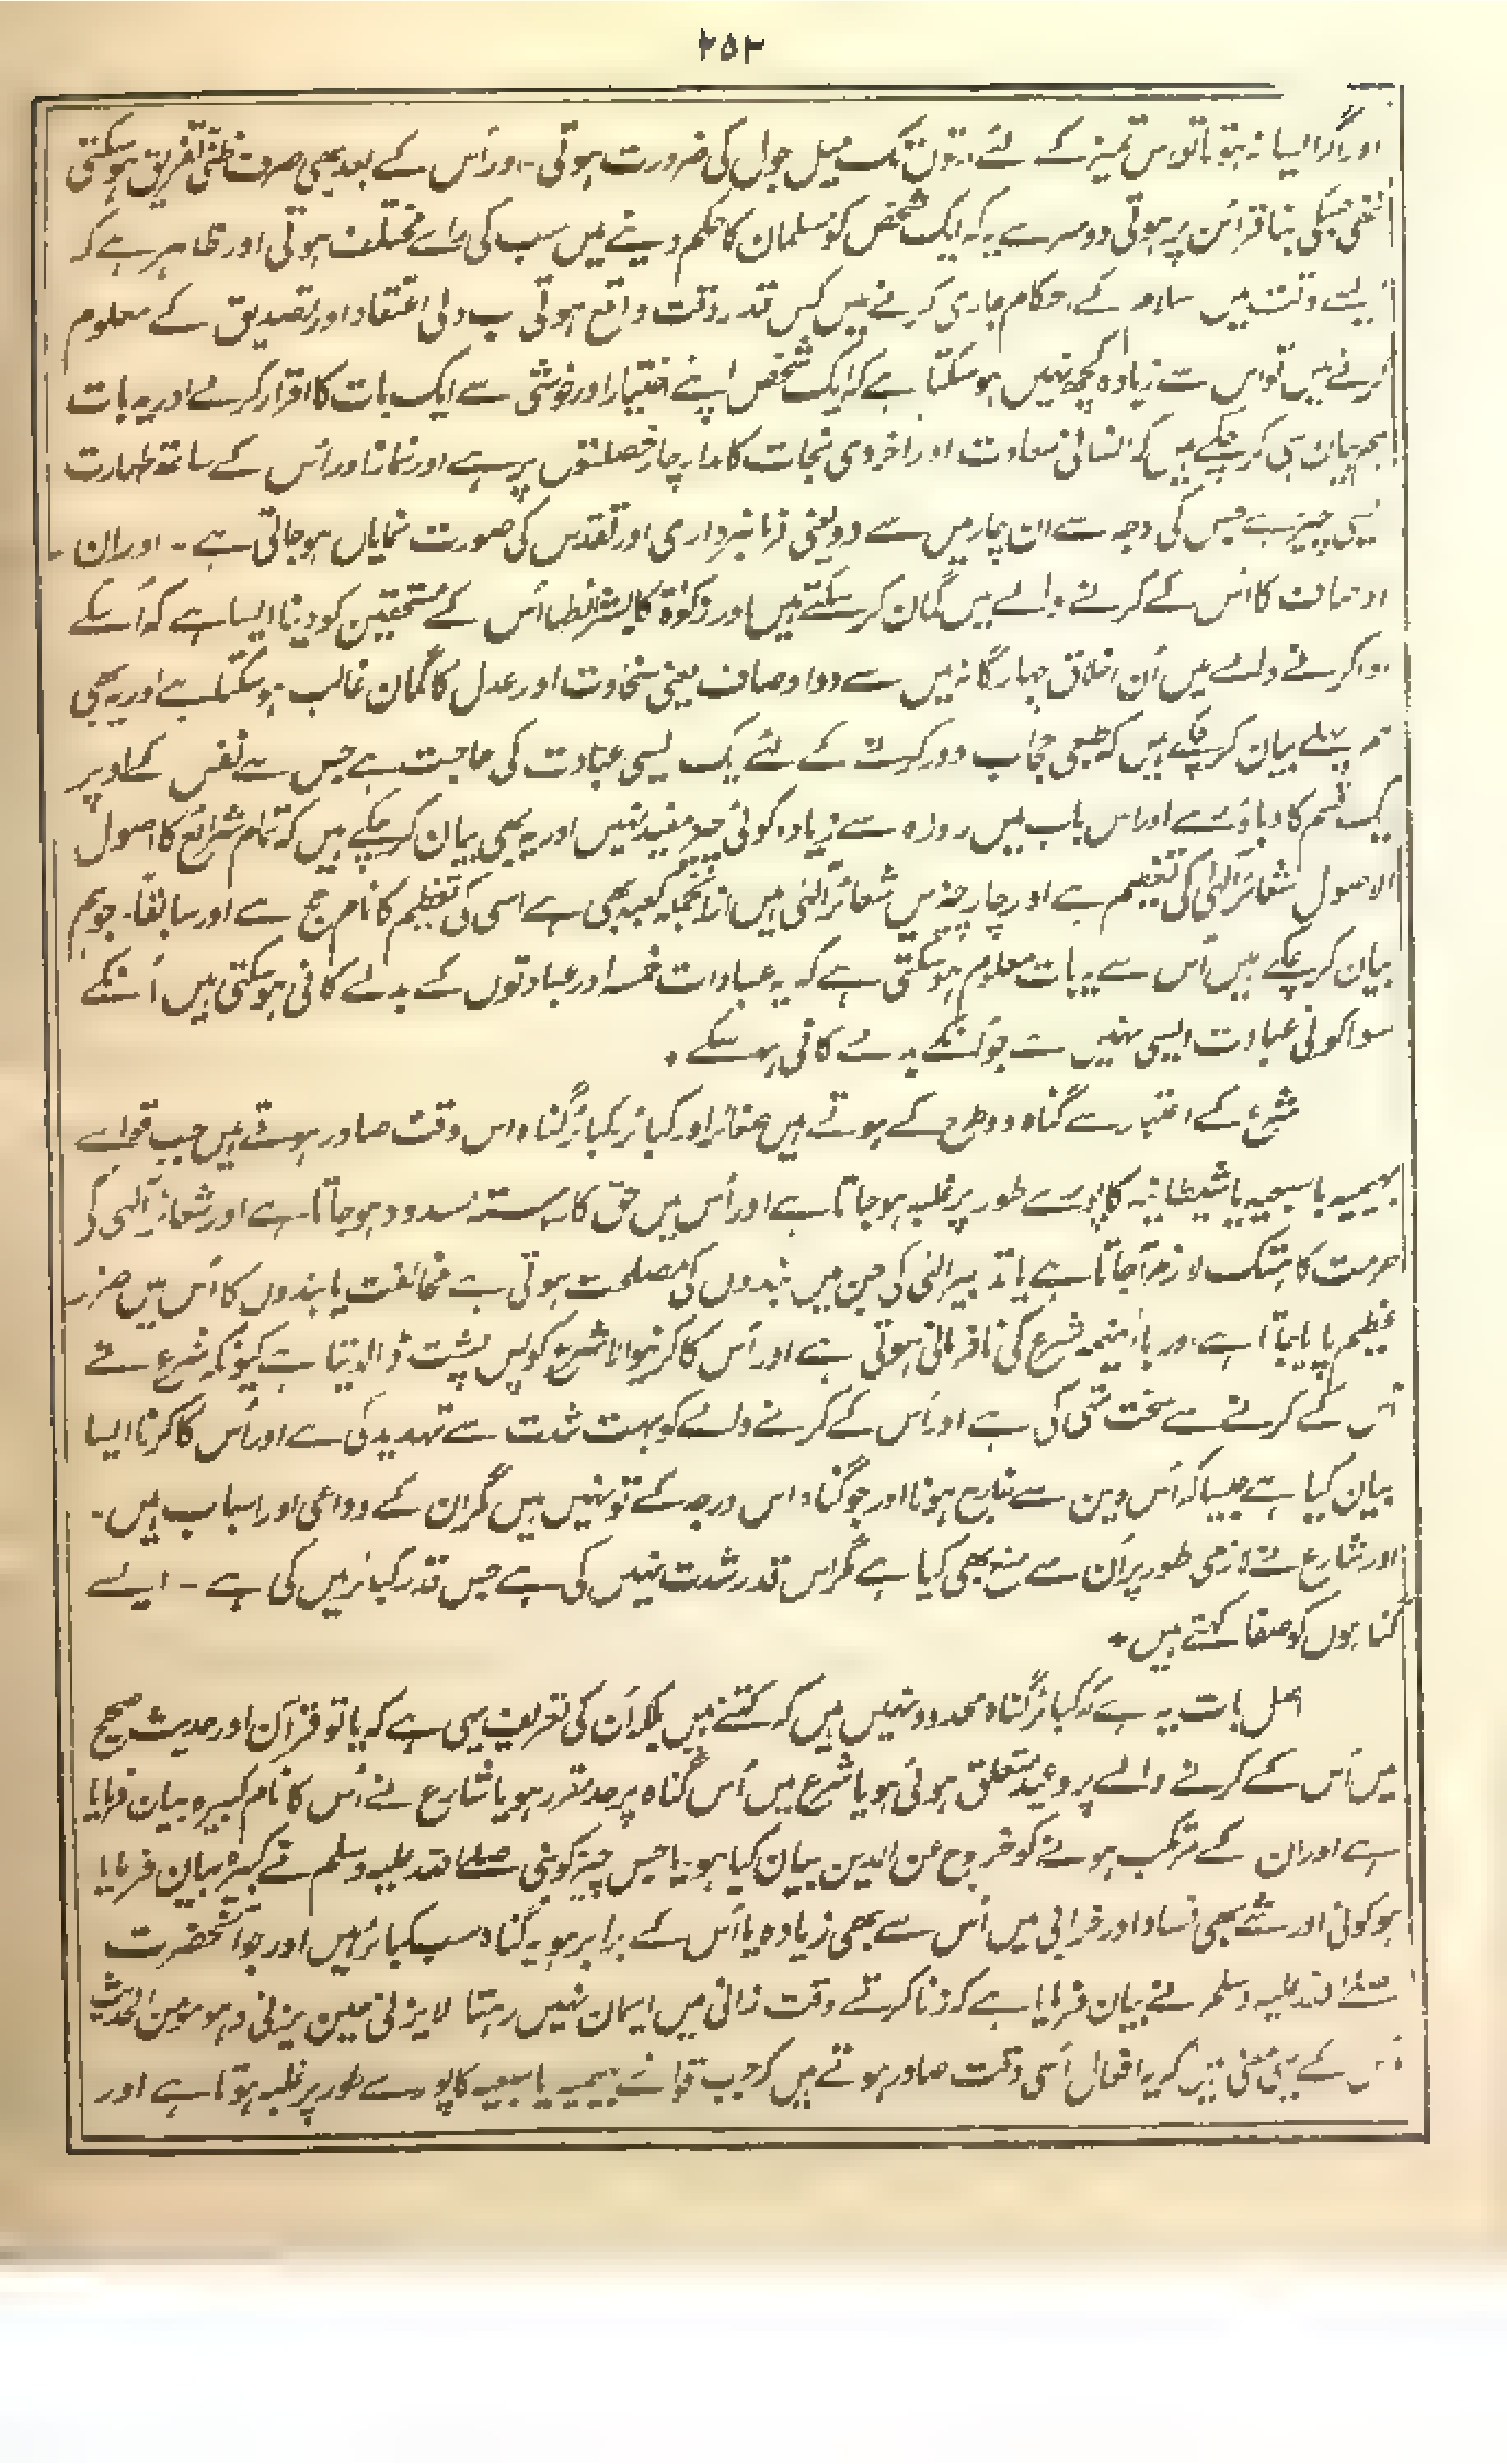 ۲۵۲
اور اگر ایسا نہ ہوتا تو اس تمیز کے لئے مدتوں تک میل جول کی ضرورت ہوتی۔ اور اُس کے بعد بھی صرف ظنی تفریق ہوسکتی
تھی جسکی بنا قرائن پر ہوتی دوسرے یہ کہ ایک شخص کو مسلمان کا حکم دینے میں سب کی راے مختلف ہوتی اور ظاہر ہے کہ
ایسے وقت میں اسلام کے احکام جاری کرنے میں کس قدر دقت واقع ہوتی اب دلی اعتقاد اور تصدیق کے معلوم
کرنے میں تو اس سے زیادہ کچھ نہیں ہوسکتا ہے کہ ایک شخص اپنے اختیار اور خوشی سے ایک بات کا اقرار کرلے اور یہ بات
ہم بیان ہی کرچکے ہیں کہ انسانی سعادت اور اخروی نجات کا مدار چار خصلتوں پر ہے اور نماز اور اُس کے ساتھ طہارت
ایسی چیز ہے جس کی وجہ سے ان چار میں سے دو یعنی فرمانبرداری اور تقدس کی صورت نمایاں ہوجاتی ہے۔ اور ان
اوصاف کا اُس کے کرنے والے میں گمان کرسکتے ہیں اور زکوٰۃ کا بشرائط اُس کے مستحقین کو دینا ایسا ہے کہ اُسکے
ادا کرنے والے میں اُن اخلاق چہارگانہ میں سے دو اوصاف یعنی سخاوت اور عدل کا گمان غالب ہوسکتا ہے اور یہ بھی
ہم پہلے بیان کرچکے ہیں کہ طبعی حجاب دور کرنے کے لئے ایک ایسی عبادت کی حاجت ہے جس سے نفس کے اوپر
ایک قسم کا دباؤ رہے اور اس باب میں روزہ سے زیادہ کوئی چیز مفید نہیں اور یہ بھی بیان کرچکے ہیں کہ تمام شرائع کا اصول
الاصول شعائر الٰہی کی تعظیم ہے اور چار چیزیں شعائر الٰہی ہیں ازانجملہ کعبہ بھی ہے اسی کی تعظیم کا نام حج ہے اور سابقاً۔ جو ہم
بیان کرچکے ہیں اُس سے یہ بات معلوم ہوسکتی ہے کہ یہ عبادات خمسہ اور عبادتوں کے بدلے کافی ہوسکتی ہیں اُنکے
سوا کوئی عبادت ایسی نہیں ہے جو اُنکے بدلے کافی ہوسکے ٭
شرع کے اعتبار سے گناہ دو طرح کے ہوتے ہیں صغائر اور کبائر کبائر گناہ اس وقت صادر ہوتے ہیں جب قواے
بہیمیہ یا سبعیہ یا شیطانیہ کا پورے طور پر غلبہ ہوجاتا ہے اور اُس میں حق کا رستہ مسدود ہوجاتا ہے اور شعائر الٰہی کی
حرمت کا ہتک لازم آجاتا ہے یا تدابیر الٰہی کی جن میں بندوں کی مصلحت ہوتی ہے مخالفت یا بندوں کا اُس میں ضرر
عظیم پایا جاتا ہے اور باینہمہ شرع کی نافرمانی ہوتی ہے اور اُس کا کرنیوالا شرع کو پس پشت ڈالدیتا ہے کیونکہ شرع نے
اُس کے کرنے سے سخت نہی کی ہے اور اُس کے کرنے والے کو بہت شدت سے تہدید کی ہے اور اُس کا کرنا ایسا
بیان کیا ہے جیسا کہ اُس دین سے خارج ہونا اور جو گناہ اس درجہ کے تو نہیں ہیں مگر ان کے دواعی اور اسباب ہیں۔
اور شارع نے لازمی طور پر اُن سے منع بھی کیا ہے مگر اس قدر شدت نہیں کی ہے جس قدر کبائر میں کی ہے ۔ ایسے
گناہوں کو صغائر کہتے ہیں ٭
اصل بات یہ ہے کہ کبائر گناہ محدود نہیں ہیں کہ کتنے ہیں بلکہ اُن کی تعریف یہی ہے کہ یا تو قرآن اور حدیث صحیح
میں اُس کے کرنے والے پر وعید متعلق ہوئی ہو یا شرع میں اُس گناہ پر حد مقرر ہو یا شارع نے اُس کا نام کبیرہ بیان فرمایا
ہے اور ان کے مرتکب ہونے کو خروج من الدین بیان کیا ہو۔ یا جس چیز کو نبی صلے اللہ علیہ وسلم نے کبیرہ بیان فرمایا
ہو کوئی اور شے بھی فساد اور خرابی میں اُس سے بھی زیادہ یا اُس کے برابر ہو یہ گناہ سب کبائر ہیں اور جو آنحضرت
صلے اللہ علیہ وسلم نے بیان فرمایا ہے کہ زنا کرتے وقت زانی میں ایمان نہیں رہتا لا یزنی حین یزنی وہو مومن الحدیث
اُس کے یہی معنی ہیں کہ یہ افعال اُسی وقت صادر ہوتے ہیں کہ جب قواے بہیمیہ یا سبعیہ کا پورے طور پر غلبہ ہوتا ہے اور